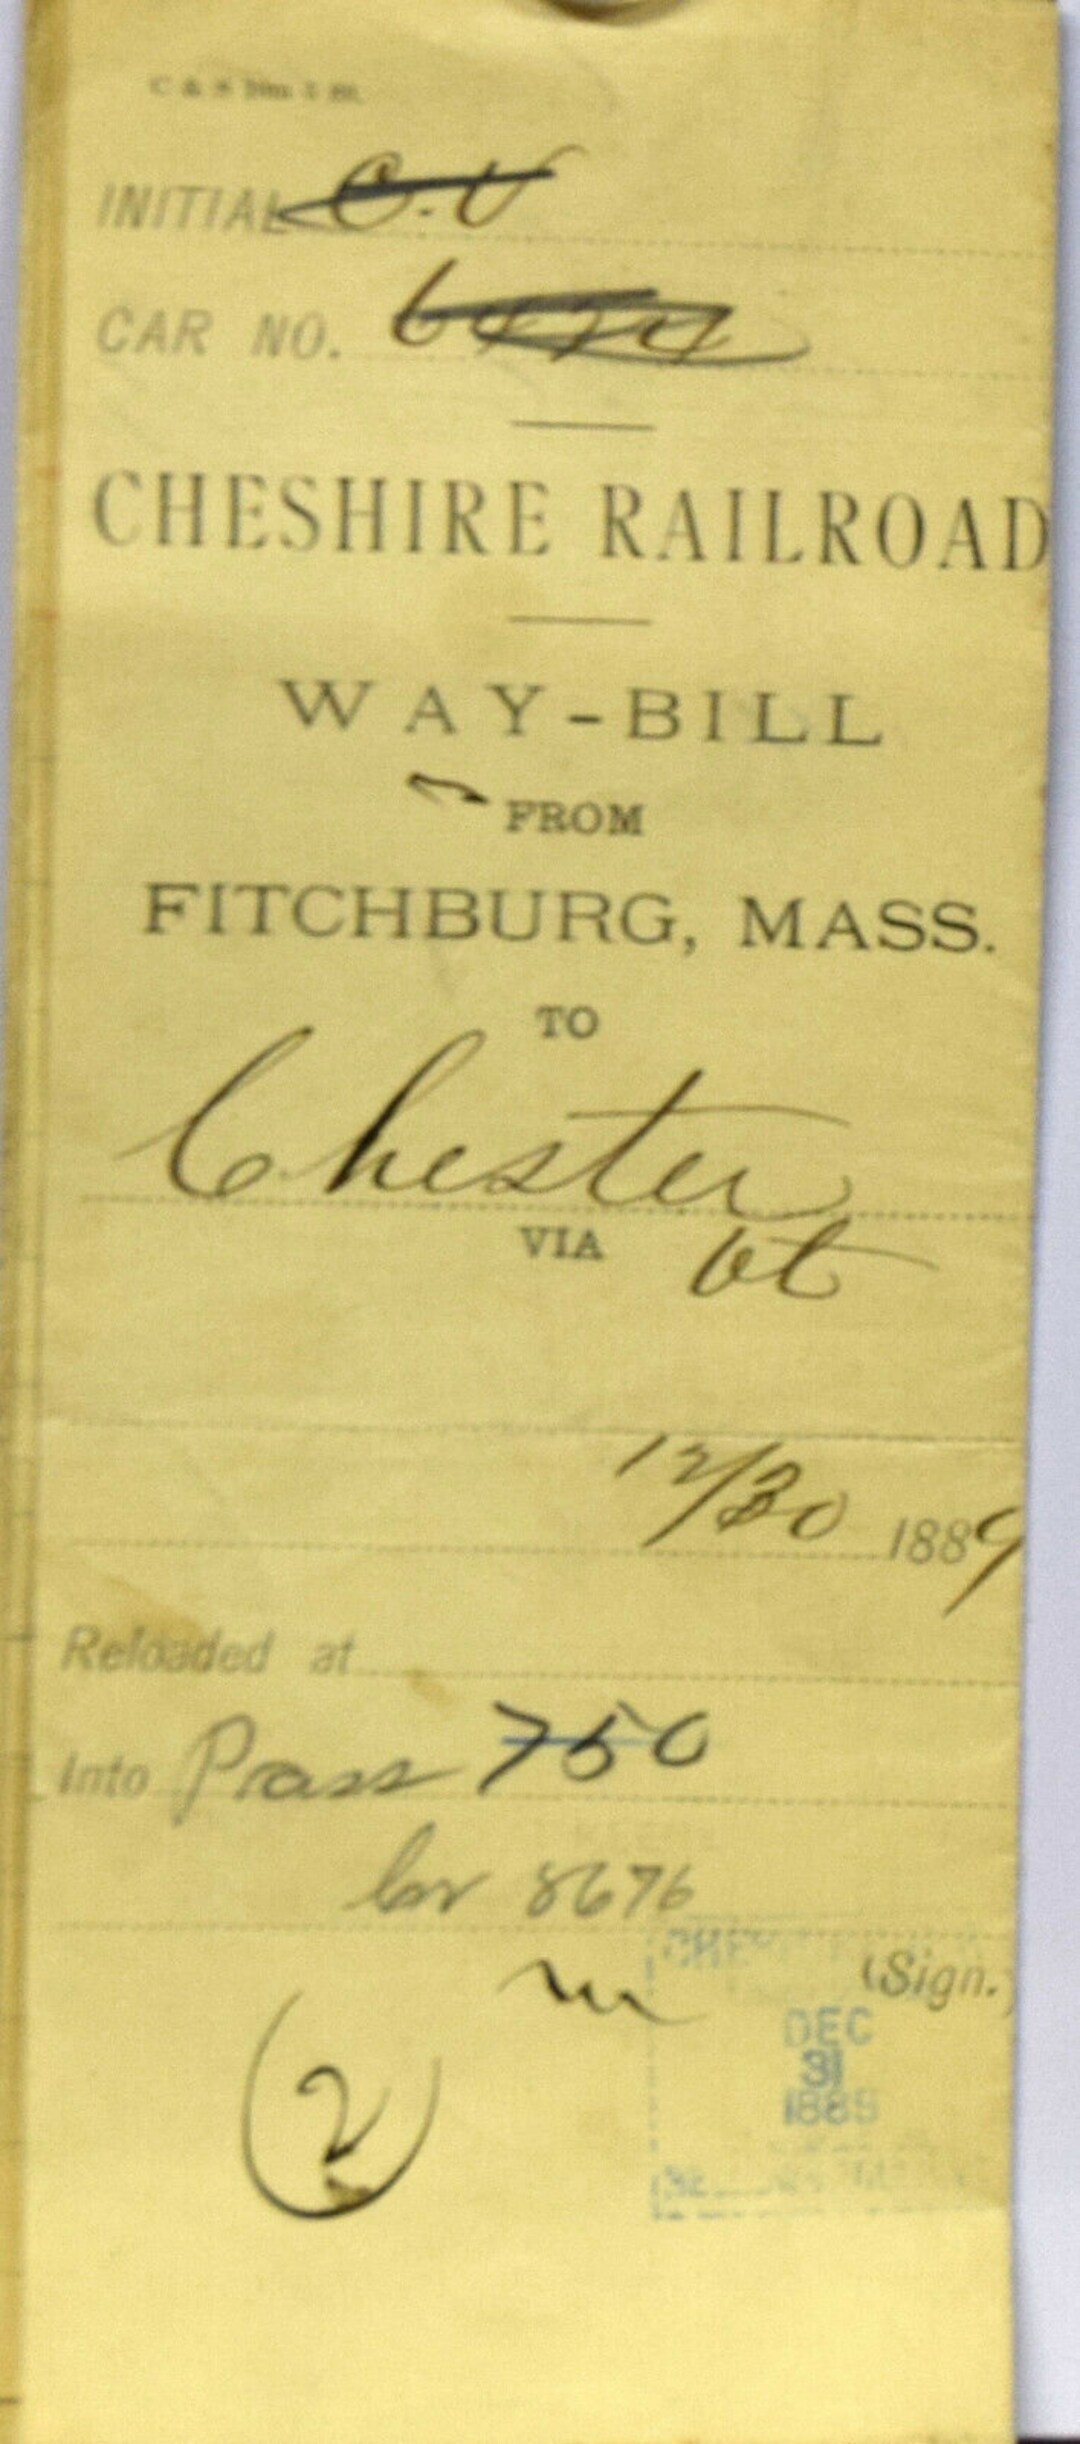 INITIAL C.V
CAR NO.
CHESHIRE RAILROAD
WAY-BILL
FROM
FITCHBURG, MASS.
TO
Chester
VIA Vt
12/30 1889
Reloaded at
Into Pass 750
8676
(Sign.)
DEC
31
1889
2